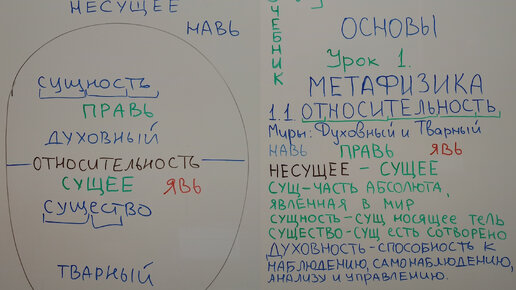 НЕСУЩЕЕ
НАВЬ
СУЩНОСТЬ
ПРАВЬ
ДУХОВНЫЙ
ОТНОСИТЕЛЬНОСТЬ
СУЩЕЕ ЯВЬ
СУЩЕСТВО
ТВАРНЫЙ
ЧЕБНИК
ОСНОВЫ
Урок 1.
МЕТАФИЗИКА
1.1 ОТНОСИТЕЛЬНОСТЬ
Миры: Духовный и Тварный
НАВЬ ПРАВЬ ЯВЬ
НЕСУЩЕЕ - СУЩЕЕ
СУЩ-ЧАСТЬ АБСОЛЮТА,
ЯВЛЕННАЯ В МИР
СУЩНОСТЬ-СУЩ НОСЯЩЕЕ ТЕЛЬ
СУЩЕСТВО-СУЩ ЕСТЬ СОТВОРЕНО
ДУХОВНОСТЬ-СПОСОБНОСТЬ К
НАБЛЮДЕНИЮ, САМОНАБЛЮДЕНИЮ,
АНАЛИЗУ И УПРАВЛЕНИЮ.